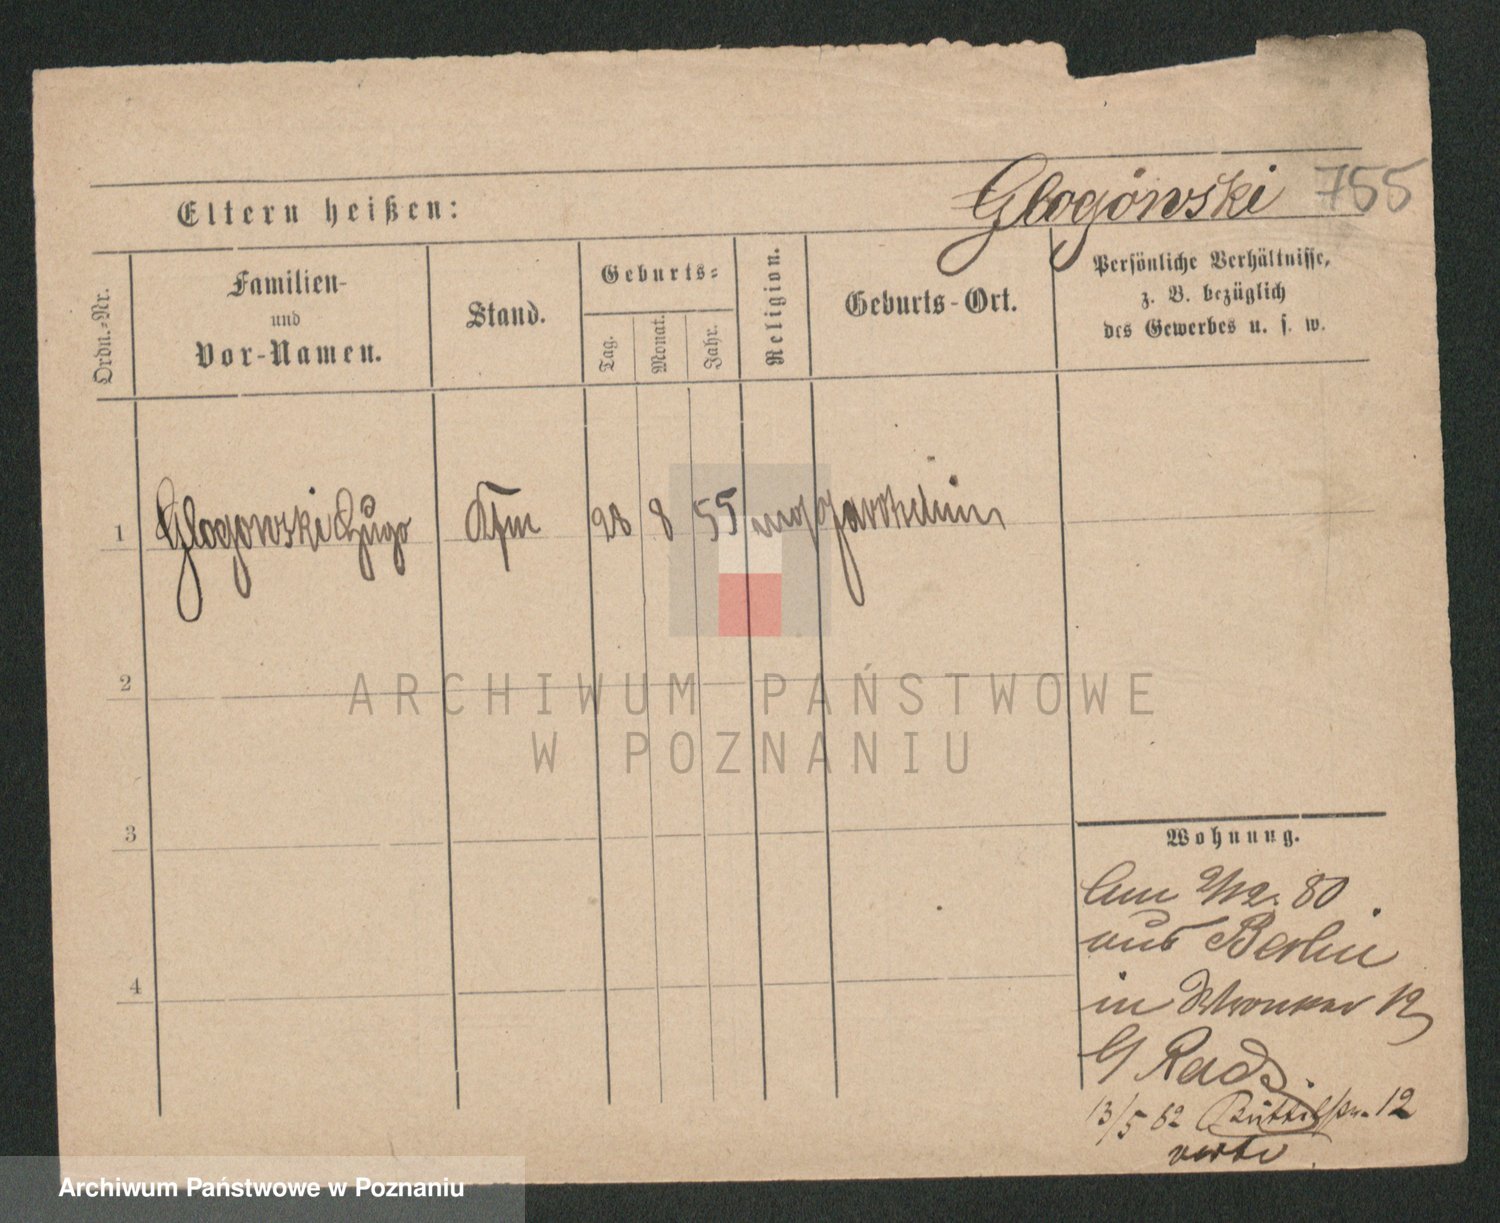 Glogówski 755
Eltern heißen:
Ordn.-Nr.
Familien-
und
Vor-Namen.
Stand.
Geburts-
Tag.
Monat.
Jahr.
Religion.
Geburts-Ort.
Persönliche Verhältnisse,
z. B. bezüglich
des Gewerbes u. s. w.
1 Glogowski Hugo Kfm 28 8 55 mos
2
3
4
ARCHIWUM PAŃSTWOWE
W POZNANIU
Wohnung.
Am 2/12. 80
aus Berlin
in Wronker 12
13/5 82 Büttelstr. 12
verte
Archiwum Państwowe w Poznaniu